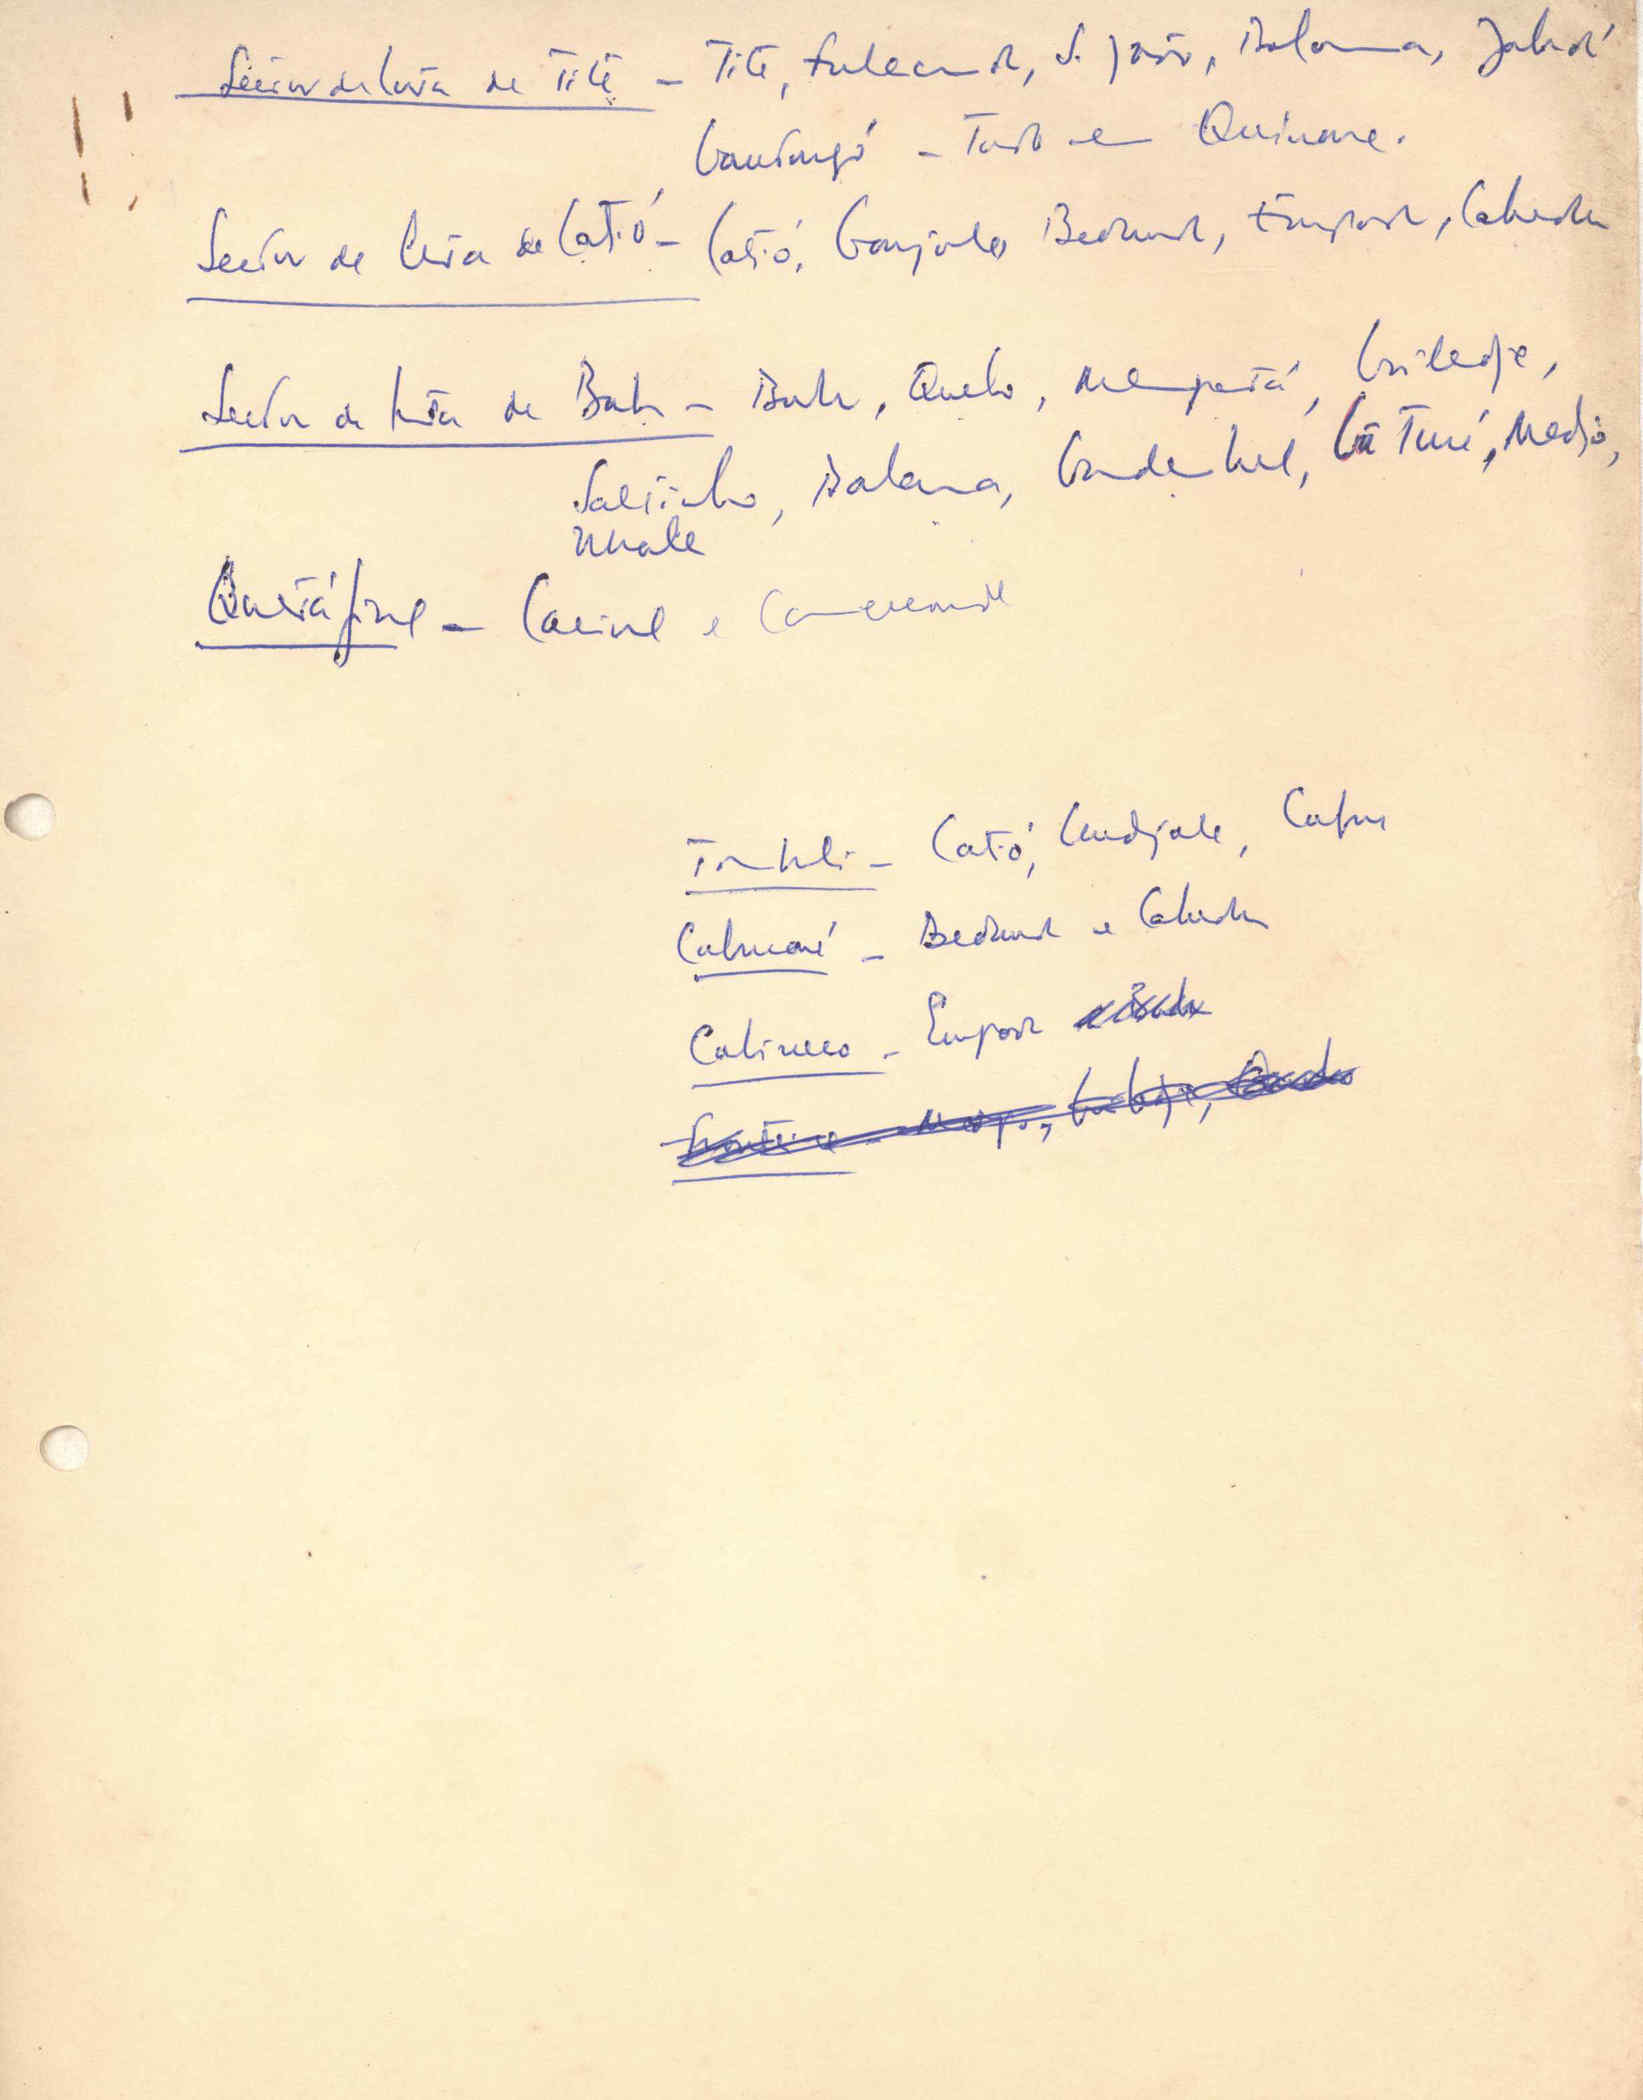 Sector de luta de Tite – Tite, Fulacunda, S. João, Bolama, Jabadá
Gantongó – Tudo em Quinara.
Sector de luta de Catió – Catió, Ganjola, Bedanda, Empada, Cabedú
Sector de luta de Buba – Buba, Quebo, Mampatá, Guiledje,
Saltinho, Balana, Gandembel, Gã Turé, Medjo,
Nhala
Quitáfine – Cacine e Cameconde
Tombali – Catió, Cudjola, Cufar
Cubucaré – Bedanda e Cabedú
Cubisseco – Empada